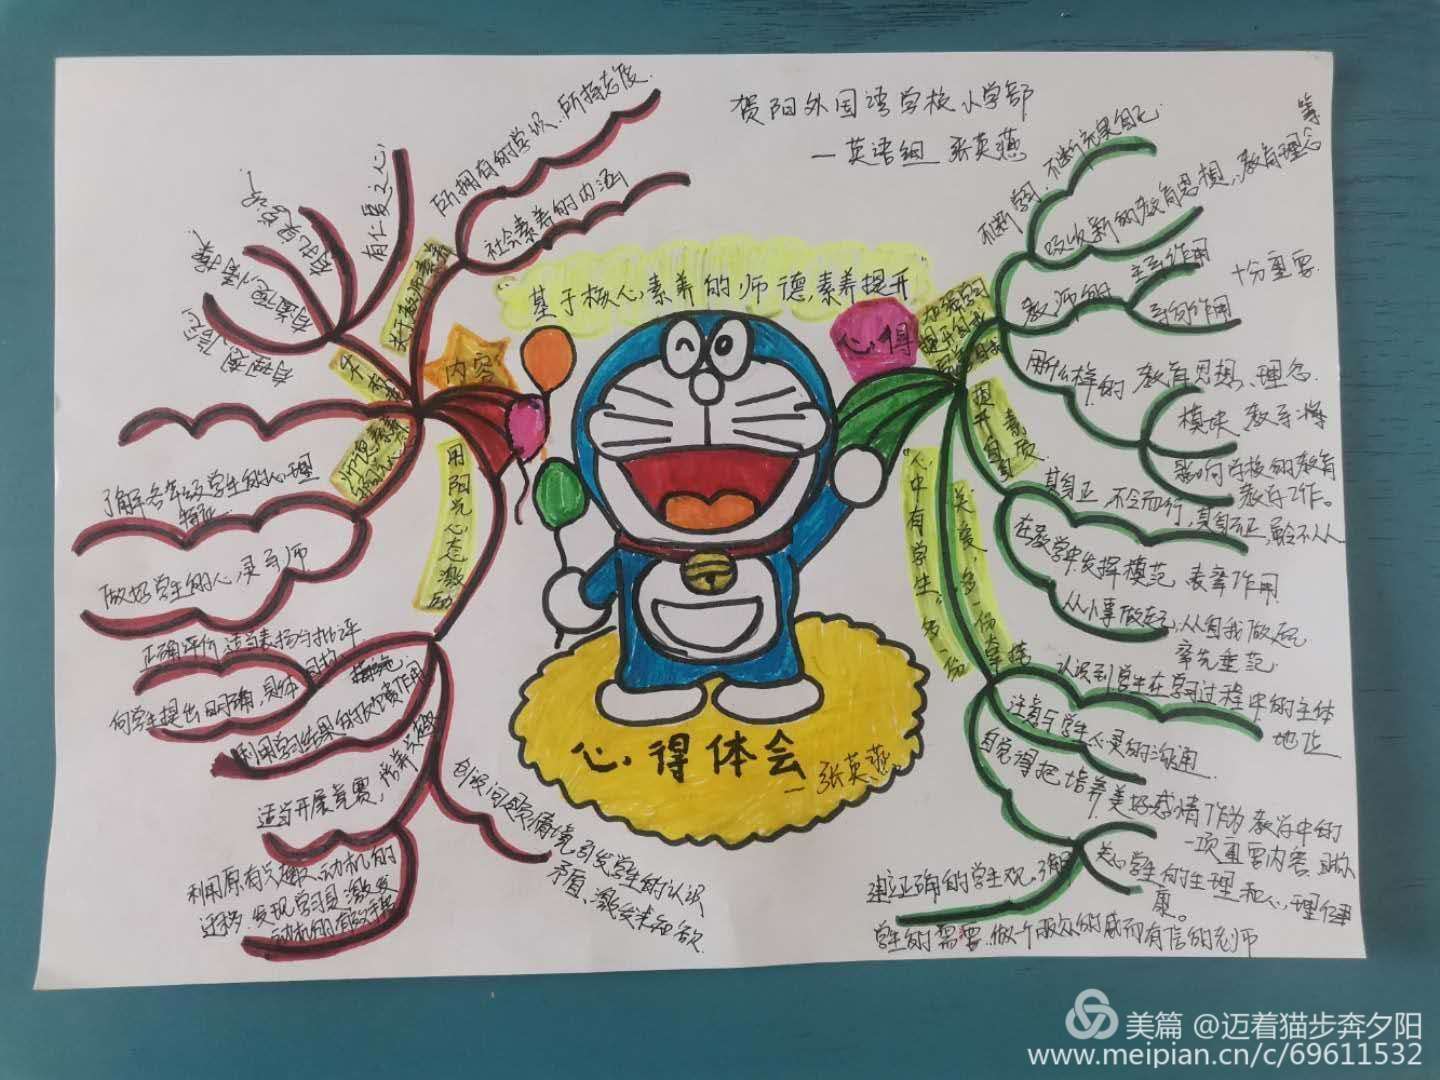 贺阳外国语学校小学部
一英语组 张英燕
基于核心素养的师德素养提升
内容
心得
所拥有的学识、所持态度
社会素养的内涵
关于教师素养
有仁爱之心
有扎实学识
有道德情操
有理想信念
了解各年级学生的心理
特征
做好学生的心灵导师
用阳光心态激励
正确评价,适当表扬与批评
向学生提出明确、具体
利用学习结果的反馈作用
适当开展竞赛,培养兴趣
利用原有兴趣、动机的
迁移,发现学习员,激发
动机的有效手段
创设问题情境,引发学生的认识
矛盾、激发求知欲
不断学习、不断充果自己
吸收新的教育思想、教育理念等
教师的
主导作用
导向作用
十分重要
用什么样的教育思想、理念
模块 教导
影响学校的教育
教学工作。
提升自身素质
其身正,不令而行,其身不正,虽令不从
在教学中发挥模范 表率作用
从小事做起,从自我做起
率先垂范
心中有学生,多一份
关爱,多一份幸福
认识到学生在学习过程中的主体
地位
注着与学生心灵的沟通
自觉得把培养美好感情作为教学中的
一项重要内容
关心学生的生理和心理健
康。
建立正确的学生观,了解
学生的需要,做个
有信的老师
心得体会
一张英燕
美篇 @迈着猫步奔夕阳
www.meipian.cn/c/69611532